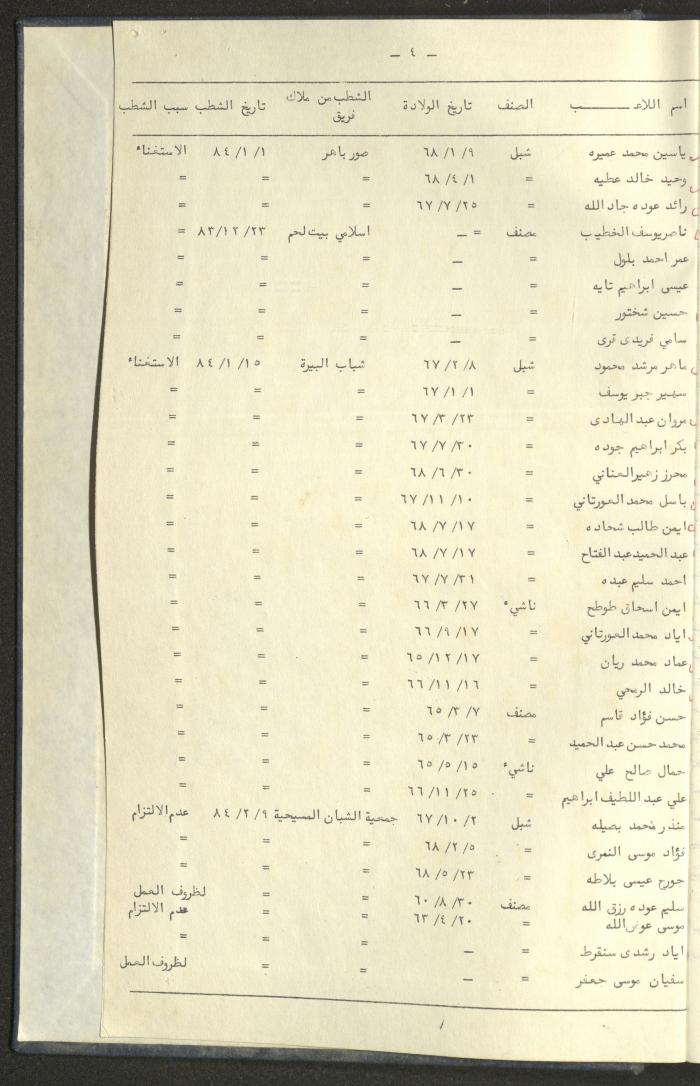 – ٤ –
اسم اللاعـــب الصنف تاريخ الولادة الشطب من ملاك فريق تاريخ الشطب سبب الشطب
ياسين محمد عميره شبل ٩/ ١/ ٦٨ صور باهر ١/ ١/ ٨٤ الاستغناء
وحيد خالد عطيه = ١/ ٤/ ٦٨ = = =
رائد عوده جاد الله = ٢٥/ ٧/ ٦٧ = = =
ناصر يوسف الخطيب مصنف = – اسلامي بيت لحم ٢٣/ ١٢/ ٨٣ =
عمر احمد بلول = – = = =
عيسى ابراهيم تايه = – = = =
حسين شختور = – = = =
سامي فريدى قرى = – = = =
ماهر مرشد محمود شبل ٨/ ٢/ ٦٧ شباب البيرة ١٥/ ١/ ٨٤ الاستغناء
سهير جبر يوسف = ١/ ١/ ٦٧ = = =
مروان عبد الهادى = ٢٣/ ٣/ ٦٧ = = =
بكر ابراهيم جوده = ٣٠/ ٧/ ٦٧ = = =
محرز زهير العناني = ٣٠/ ٦/ ٦٨ = = =
باسل محمد العورتاني = ١٠/ ١١/ ٦٧ = = =
ايمن طالب شحاده = ١٧/ ٧/ ٦٨ = = =
عبد الحميد عبد الفتاح = ١٧/ ٧/ ٦٨ = = =
احمد سليم عبده = ٣١/ ٧/ ٦٧ = = =
ايمن اسحاق طوطح ناشيء ٢٧/ ٣/ ٦٦ = = =
اياد محمد العورتاني = ١٧/ ٩/ ٦٦ = = =
عماد محمد ريان = ١٧/ ١٢/ ٦٥ = = =
خالد الرمحي = ١٦/ ١١/ ٦٦ = = =
حسن فؤاد قاسم مصنف ٧/ ٣/ ٦٥ = = =
محمد حسن عبد الحميد = ٢٣/ ٣/ ٦٥ = = =
جمال صالح علي ناشيء ١٥/ ٥/ ٦٥ = = =
علي عبد اللطيف ابراهيم = ٢٥/ ١١/ ٦٦ = = =
منذر محمد بصيله شبل ٢/ ١٠/ ٦٧ جمعية الشبان المسيحية ٩/ ٢/ ٨٤ عدم الالتزام
فؤاد موسى النمرى = ٥/ ٢/ ٦٨ = = =
جورج عيسى بلاطه = ٢٣/ ٥/ ٦٨ = = =
سليم عوده رزق الله مصنف ٣٠/ ٨/ ٦٠ = = لظروف العمل
موسى عوض الله = ٢٠/ ٤/ ٦٣ = = عدم الالتزام
اياد رشدى سنقرط = – = = =
سفيان موسى جعفر = – = = لظروف العمل